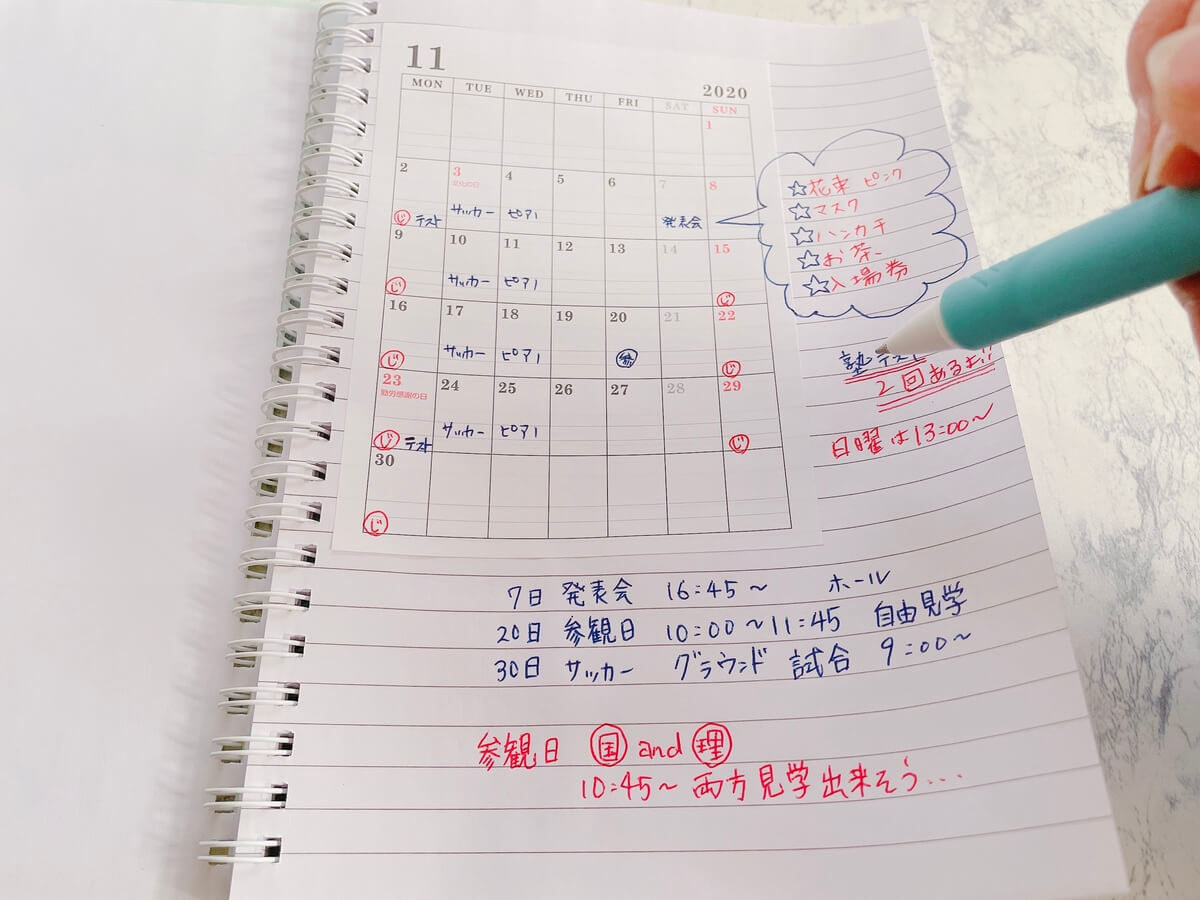 11
2020
MON TUE WED THU FRI SAT SUN
1
2 3 4 5 6 7 8
文化の日
じ テスト サッカー ピアノ 発表会
9 10 11 12 13 14 15
じ サッカー ピアノ じ
16 17 18 19 20 21 22
じ サッカー ピアノ 参 じ
23 24 25 26 27 28 29
勤労感謝の日
じ テスト サッカー ピアノ じ
30
じ
☆花束 ピンク
☆マスク
☆ハンカチ
☆お茶
☆入場券
塾テスト
2回あるよ!!
日曜は13:00〜
7日 発表会 16:45〜 ホール
20日 参観日 10:00〜11:45 自由見学
30日 サッカー グラウンド 試合 9:00〜
参観日 国 and 理
10:45〜 両方見学出来そう…